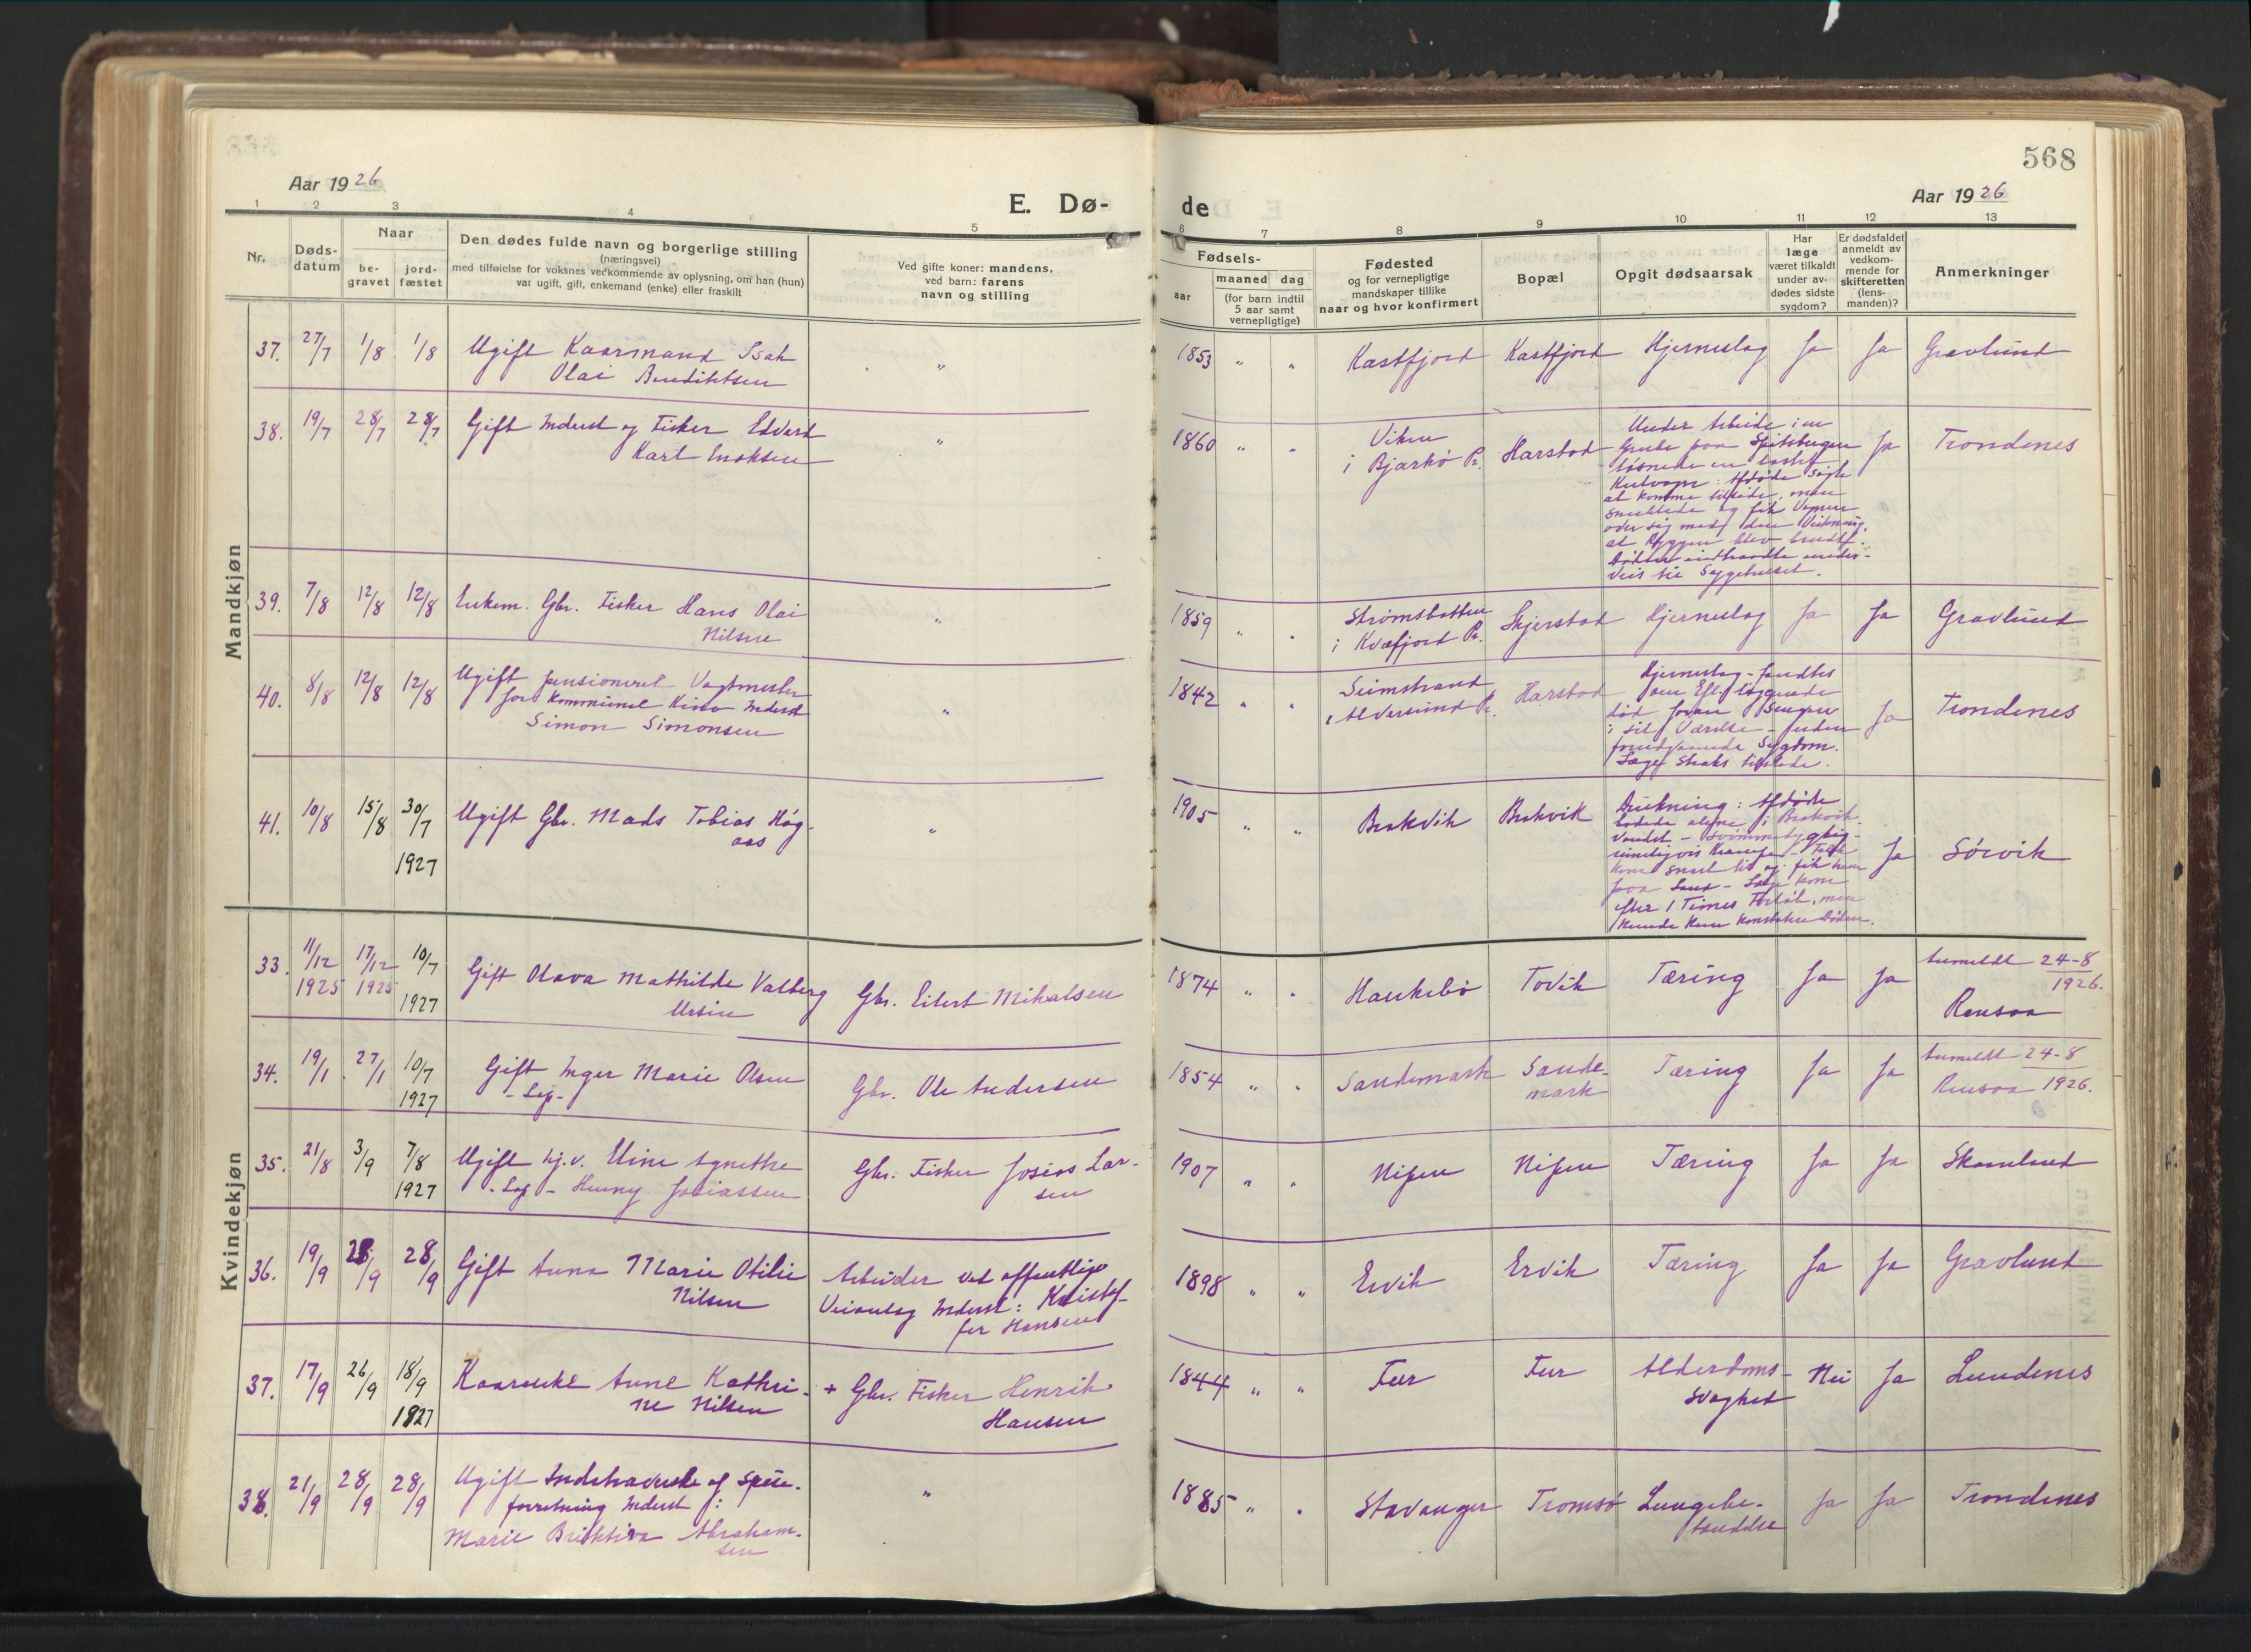 568
Aar 1926
E. Dø-
de
Aar 1926
1 2 3 4 5 6 7 8 9 10 11 12 13
Nr.
Døds-
datum
Naar
be-
gravet
jord-
fæstet
Den dødes fulde navn og borgerlige stilling
(næringsvei)
med tilføielse for voksnes vedkommende av oplysning, om han (hun)
var ugift, gift, enkemand (enke) eller fraskilt
Ved gifte koner: mandens,
ved barn: farens
navn og stilling
Fødsels-
aar
maaned dag
(for barn indtil
5 aar samt
vernepligtige)
Fødested
og for vernepligtige
mandskaper tillike
naar og hvor konfirmert
Bopæl
Opgit dødsaarsak
Har
læge
været tilkaldt
under av-
dødes sidste
sygdom?
Er dødsfaldet
anmeldt av
vedkom-
mende for
skifteretten
(lens-
manden)?
Anmerkninger
Mandkjøn
37. 27/7 1/8 1/8 Ugift Kaarmand Isak
Olai Benediktsen
" 1853 " " Kastfjord Kastfjord Hjerneslag Ja Ja Gravlund
38. 19/7 28/7 28/7 Gift Inderst og Fisker Edvard
Karl Enoksen
" 1860 " " Viken
i Bjarkö Pr. Harstad
Under Arbeide i en
Grube paa Spitsbergen
løsnede en lastet
Kulvogn: Afdøde søgte
at komme tilside, men
snublede og fik Vognen
over sig med den Virkning,
at Ryggen blev brudt.
Døden indtraadte under-
veis til Sygehuset.
Ja Trondenes
39. 7/8 12/8 12/8 Enkem. Gbr. Fisker Hans Olai
Nilsen
" 1859 " " Strømsbotten
i Kvæfjord Pr. Skjerstad Hjerneslag Ja Ja Gravlund
40. 8/8 12/8 12/8 Ugift pensioneret Vagtmester
for Kommunal Kino Inderst
Simon Simonsen
" 1842 " " Seimstrand
i Alversund Pr. Harstad
Hjerneslag - fandtes
om Eft. liggende
død foran Sengen
i sit Værelse - uden
foregaaende Sygdom.
Læge straks tilstede.
Ja Trondenes
41. 10/8 15/8 30/7
1927
Ugift Gbr. Mads Tobias Høg-
aas
" 1905 " " Brokvik Brokvik
Drukning: Afdøde
badede alene i Brokvik-
vandet - svømmedygtig -
rimeligvis Krampe - Folk
kom snart til og fik ham
paa Land - Læge kom
efter 1 Times Forløb, men
kunde kun konstatere Døden.
Ja Sörvik
Kvindekjøn
33. 11/12
1925 17/12
1925 10/7
1927
Gift Olava Mathilde Valborg
Ursin
Gbr. Eilert Mikalsen
1874 " " Haukebö Tovik Tæring Ja Ja Anmeldt 24-8
1926.
Rensaa
34. 19/1 27/1 10/7
1927
Gift Inger Marie Olsen
- Lap -
Gbr. Ole Andersen
1854 " " Sandemark Sande-
mark Tæring Ja Ja Anmeldt 24-8
Rensaa 1926.
35. 21/8 3/9 7/8
1927
Ugift hj.v. Agnethe
- Lap - Henny Josiassen
Gbr. Fisker Josias Lar-
sen
1907 " " Nipen Nipen Tæring Ja Ja Skaanland
36. 19/9 28/9 28/9 Gift Anna Marie Otilie
Nilsen
Arbeider ved offentlige
Veianlæg Inderst: Kristof-
fer Hansen
1898 " " Ervik Ervik Tæring Ja Ja Gravlund
37. 17/9 26/9 18/9
1927
Kaarenke Anne Kathri-
ne Nilsen
+ Gbr. Fisker Henrik
Hansen
1844 " " Fær Fær Alderdoms-
svaghed Nei Ja Lundenes
38. 21/9 28/9 28/9 Ugift Indehaverske af Spise-
forretning Inderst:
Marie Abraham-
sen
" 1885 " " Stavanger Tromsö Lungebe-
tændelse Ja Ja Trondenes